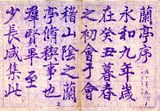 蘭亭序
永和九年歲
在癸丑暮春
之初會于會
稽山陰之蘭
亭脩稧事也
羣賢畢至
少長咸集此